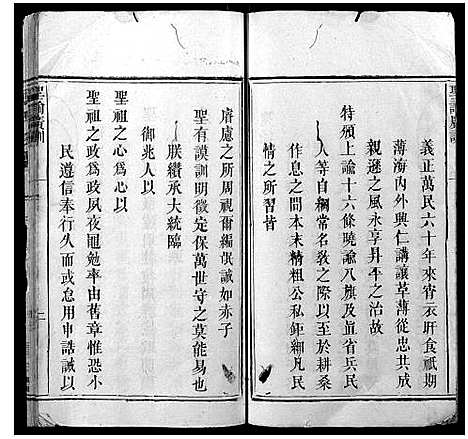 聖諭廣訓
義正萬民六十年來宵衣旰食祇期
薄海內外興仁講讓革薄從忠共成
親遜之風永享昇平之治故
特頒上諭十六條曉諭八旗及直省兵民
人等自綱常名教之際以至於耕桑
作息之間本末精粗公私鉅細凡民
情之所習皆
睿慮之所周視爾編氓誠如赤子
聖有謨訓明徵定保萬世守之莫能易也
朕纘承大統臨
御兆人以
聖祖之心為心以
聖祖之政為政夙夜黽勉率由舊章惟恐小
民遵信奉行久而或怠用申誥誡以
聖諭廣訓
二